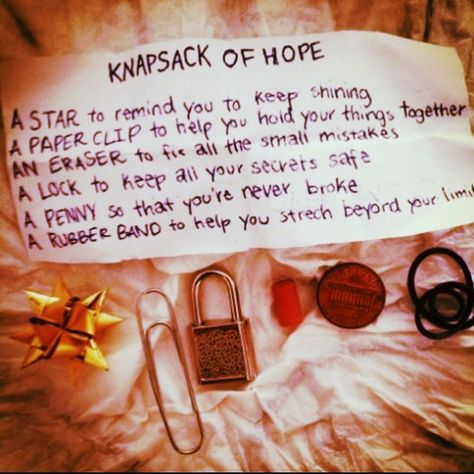 KNAPSACK OF HOPE
A STAR to remind you to keep shining
A PAPER CLIP to help you hold your things together
AN ERASER to fix all the small mistakes
A LOCK to keep all your secrets safe
A PENNY so that you're never broke
A RUBBER BAND to help you strech beyond your